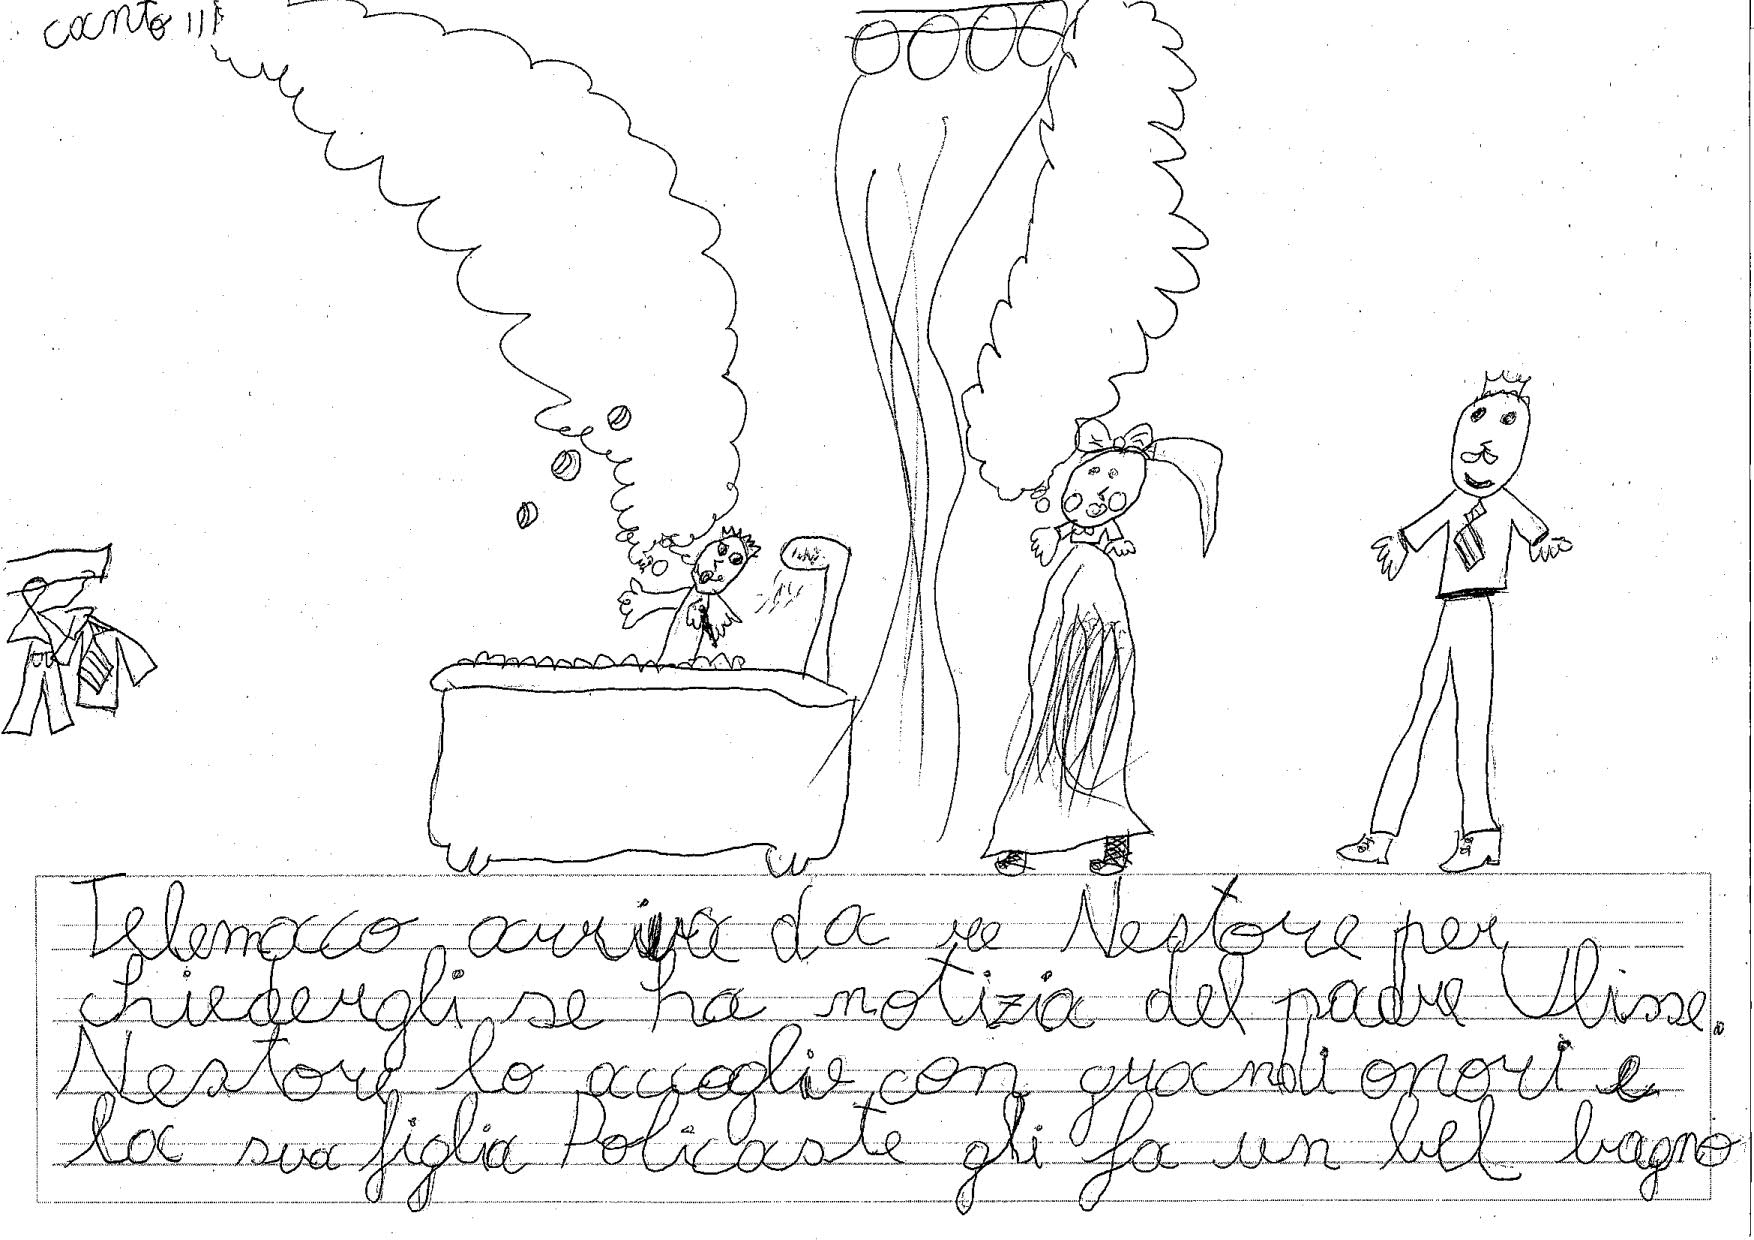 canto III
Telemaco arriva da re Nestore per
chiedergli se ha notizia del padre Ulisse.
Nestore lo accoglie con grandi onori e
la sua figlia Policaste gli fa un bel bagno